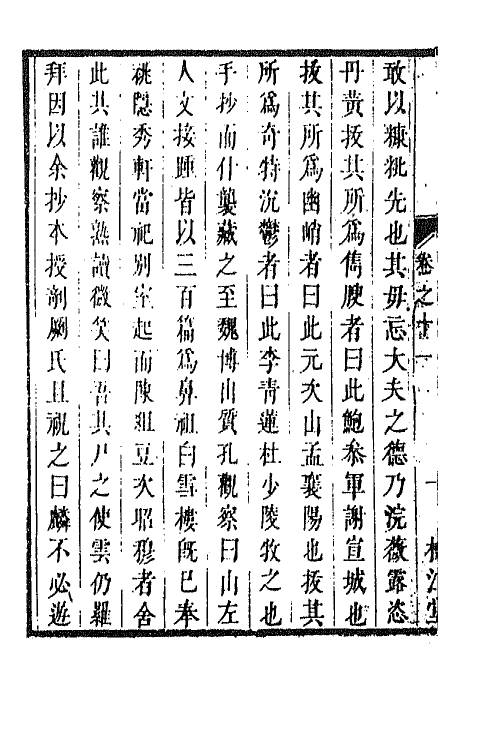 卷之十一
敢以糠粃先也其毋忘大夫之德乃浣薇露恣
丹黄拔其所爲雋腴者曰此鮑叅軍謝宣城也
拔其所爲幽峭者曰此元次山孟襄陽也拔其
所爲奇特沉鬱者曰此李靑蓮杜少陵牧之也
手抄而什襲藏之至魏博山質孔觀察曰山左
人文接踵皆以三百篇爲鼻祖白雪樓旣已奉
祧隱秀軒當祀别室起而陳俎豆次昭穆者舍
此其誰觀察熟讀微笑曰吾其尸之使雲仍羅
拜因以余抄本授剞劂氏且祝之曰麟不必遊